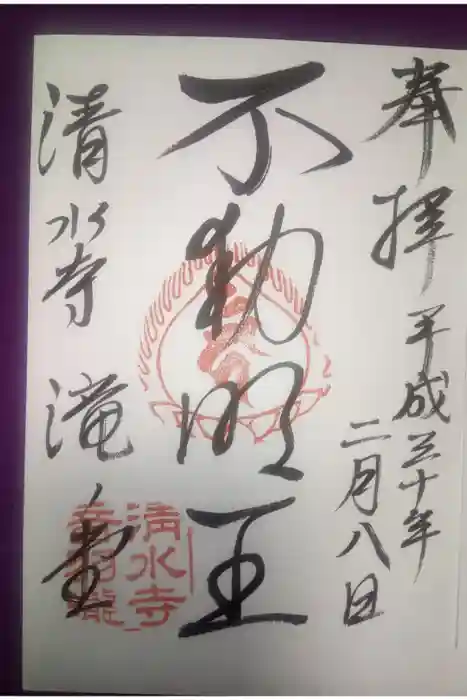 奉拝
平成三十年
二月八日
不動明王
清水寺 滝堂
清水寺
音羽瀧